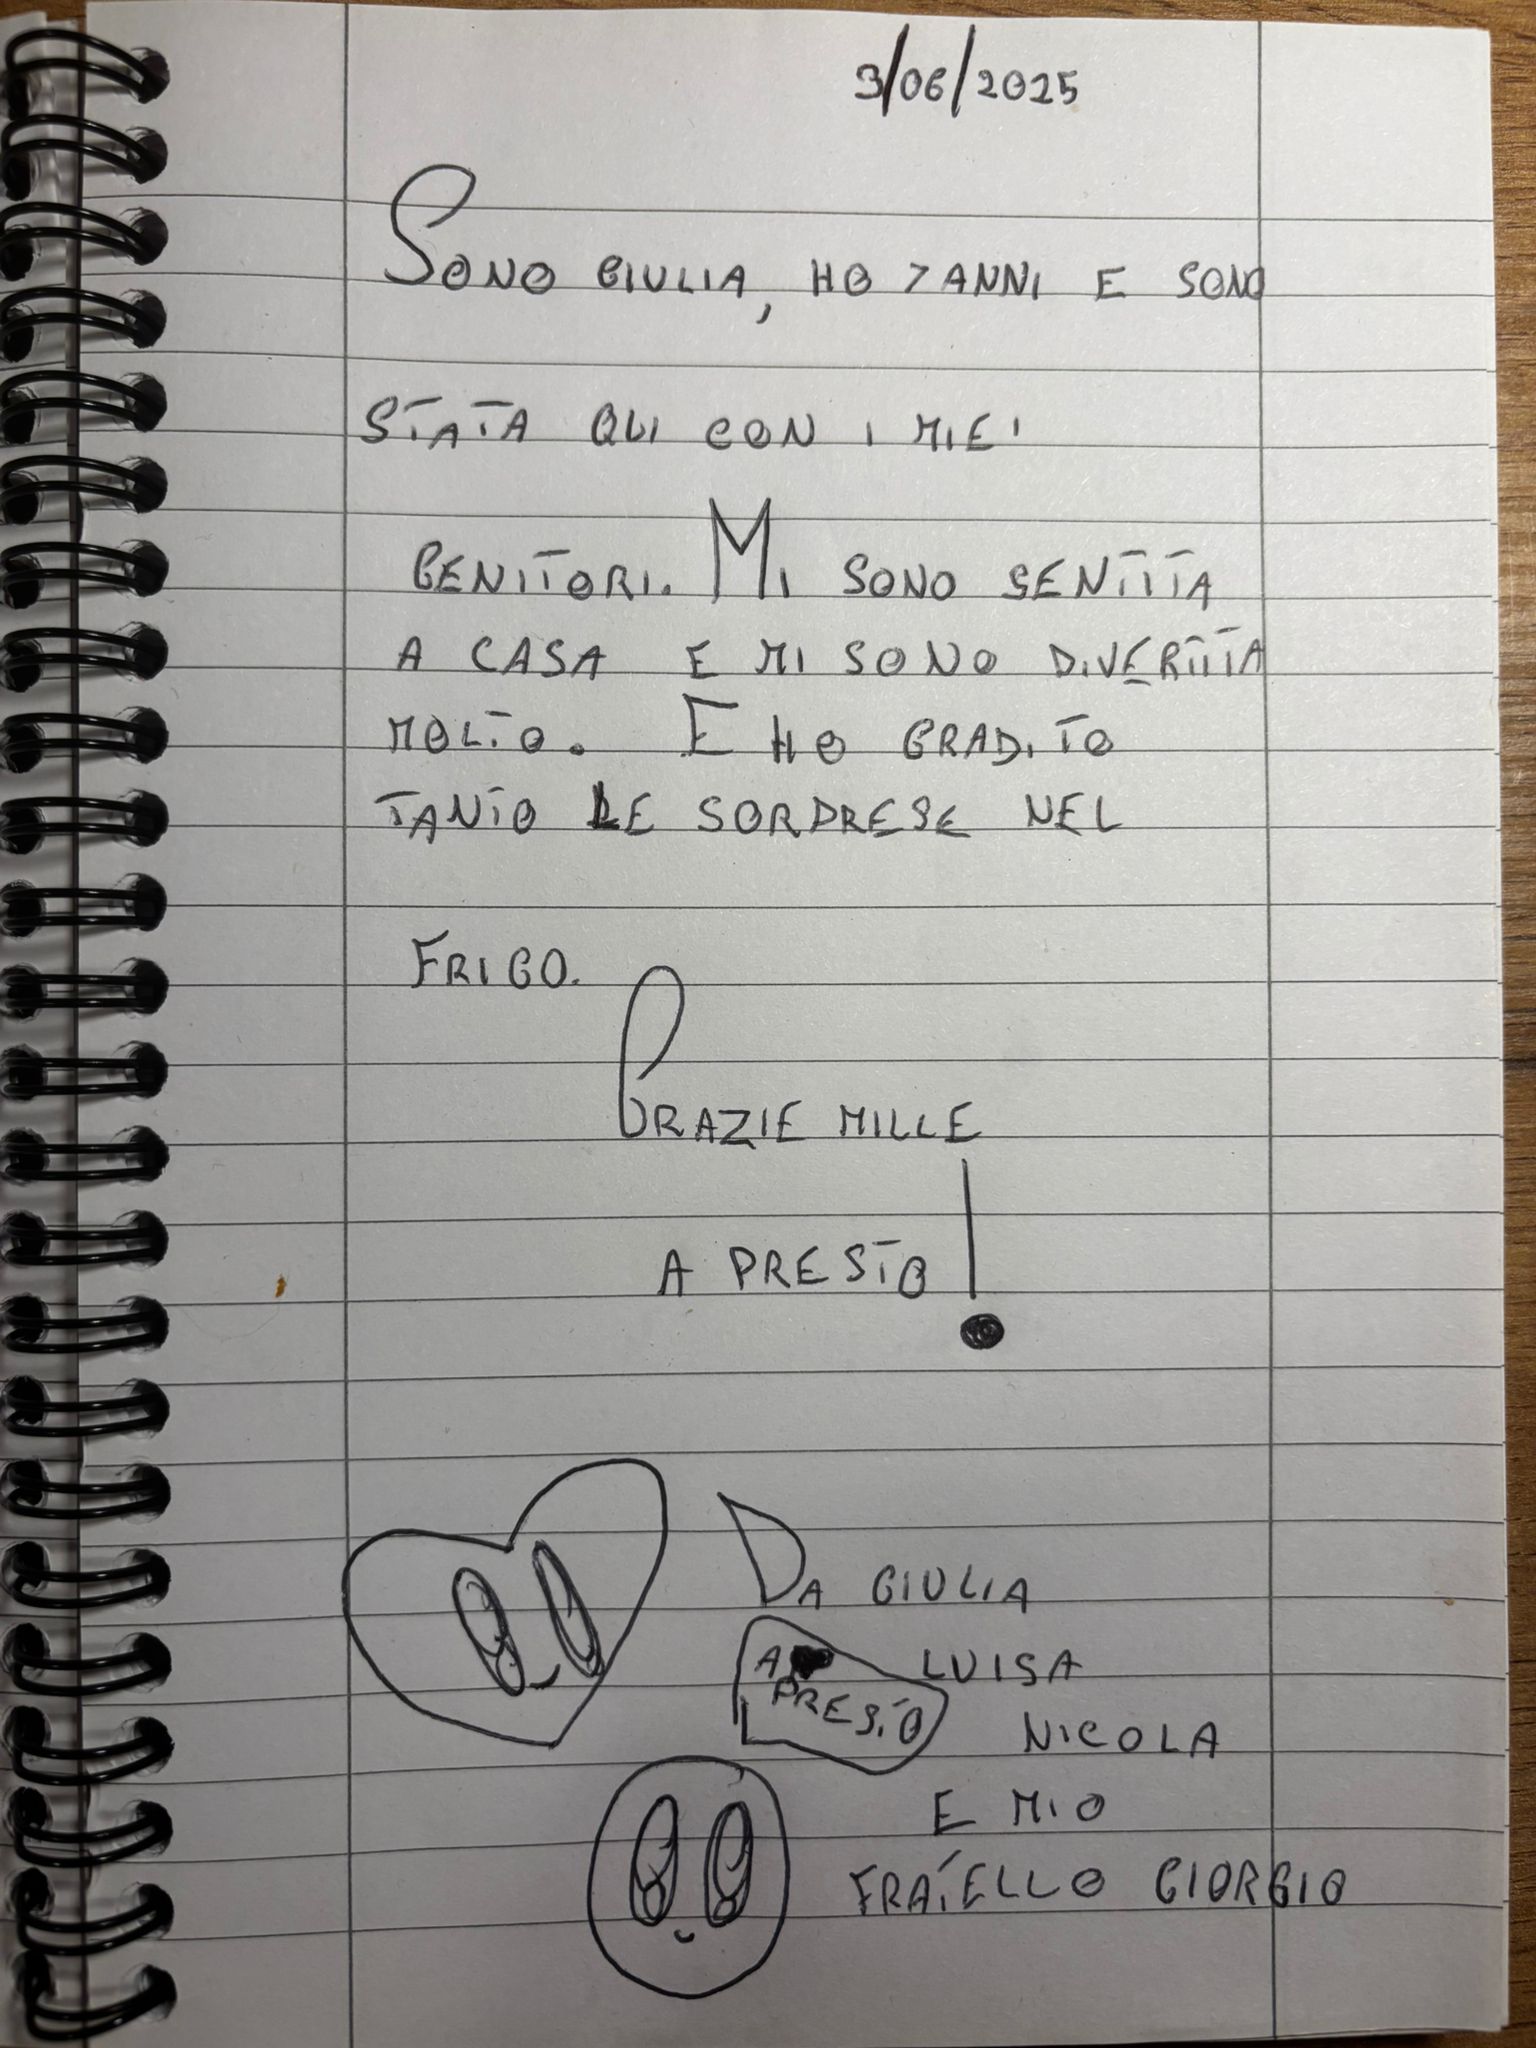 3/06/2025
SONO GIULIA, HO 7 ANNI E SONO
STATA QUI CON I MIEI
GENITORI. MI SONO SENTITA
A CASA E MI SONO DIVERTITA
MOLTO. E HO GRADITO
TANTO LE SORPRESE NEL
FRIGO.
GRAZIE MILLE
A PRESTO!
DA GIULIA
LUISA
NICOLA
E MIO
FRATELLO GIORGIO
A
PRESTO